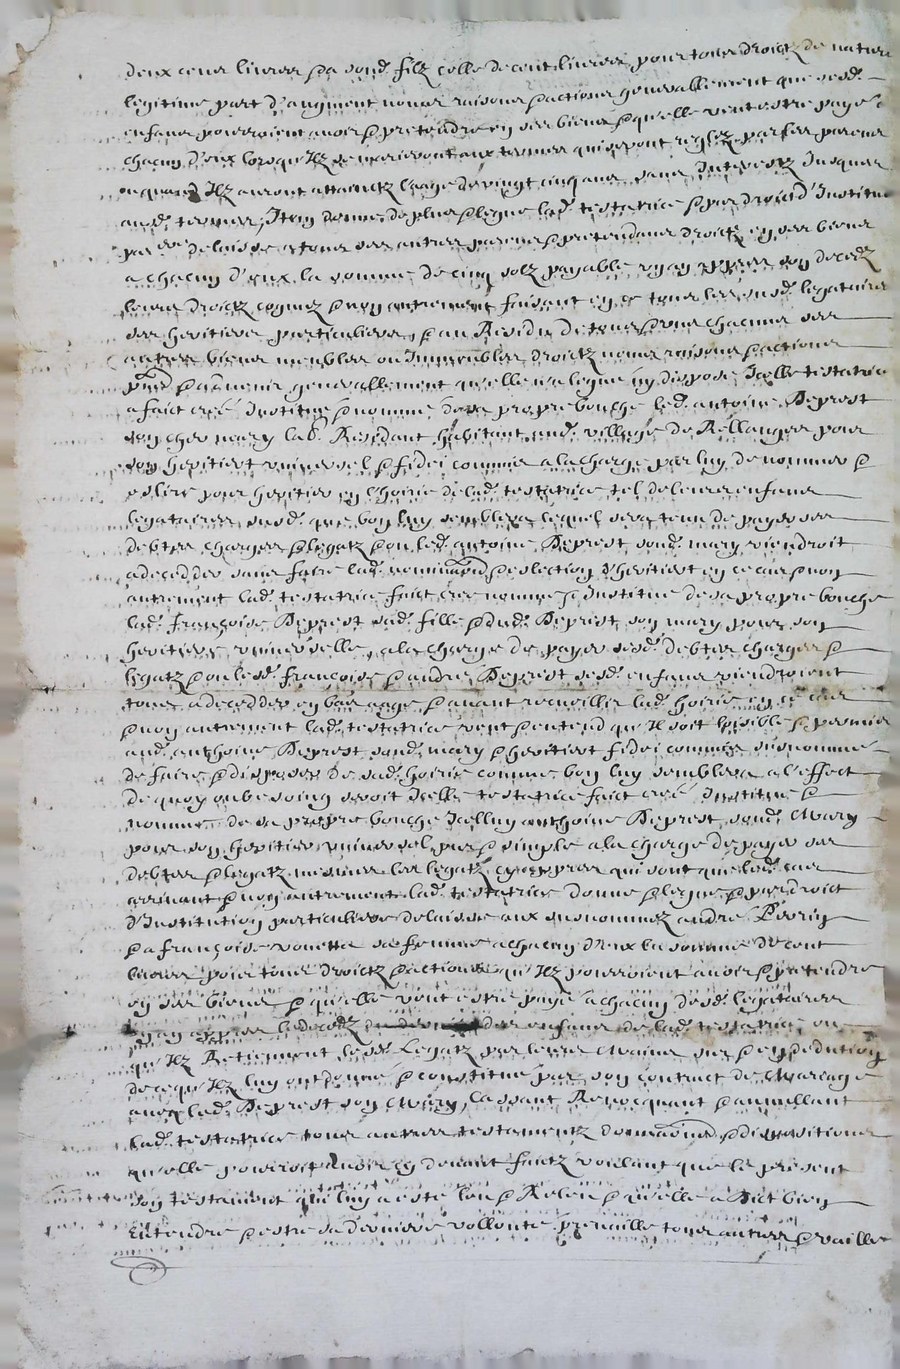 deux cens livres & a sond. filz celle de cent livres pour tous droictz de nature
legitime part d'augment noms raisons & actions generallement que sesd.
enfans pourroient avoir & pretendre en ses biens & quelle veut estre payé a
chacun d'eux lorsqu'Ilz se marieront aux termes qui seront reglez par ses parens
ou quand Ilz auront attainctz l'aage de vingt cinq ans sans Interestz Jusques
ausd. termes, Item donne de plus & legue lad. testatrice & par droict d'Institution
par delaisse a tous ses autres parens & pretendans droictz en ses biens
a chacun d'eux la somme de cinq solz payable un an appres son decedz
leurs droictz cognuz & non autrement faisant en ce tous les susd. legataires
ses heritiers particuliers, & au Residu de tous & uns chacuns ses
autres biens meubles ou Immeubles droictz noms raisons & actions
& advenir generallement qu'elle n'a legué ny disposé Icelle testatrice
a faict creé Institué & nommé de sa propre bouche led. antoine Deprest
son cher mary lad. Residant habitant aud. village de Rellanges pour
son heritier universel & fidei commis a la charge par luy de nommer &
eslire pour heritier en l'hoirie de lad. testatrice tel de leurs enfans
legataires susd. que bon luy semblera lequel sera tenu de payer ses
debtes charges & legatz & ou led. antoine Deprest sond. mary viendroit
a deceder sans faire lad. nomination & eslection d'heritier en ce cas & non
autrement lad. testatrice faict creé nomme & Institue de sa propre bouche
lad. françoise Deprest sad. fille & dud. Deprest son mary pour son
heritiere universelle, a la charge de payer sesd. debtes charges &
legatz & ou lesd. françoise & andré Deprest sesd. enfans viendroient
tous a deceder en bas aage & avant recueillir lad. hoirie en ce cas
& non autrement lad. testatrice veut & entend que Il soit loisible & permis
aud. anthoine Deprest sond. mary & heritier fidei commis susnommé
de faire & disposer de sad. hoirie comme bon luy semblera a l'effect
de quoy ou besoing seroit Icelle testatrice faict creé Institue &
nomme de sa propre bouche Icelluy anthoine Deprest sond. Mary
pour son heritier universel pur & simple a la charge de payer ses
debtes & legatz mesmes les legatz cy appres qui sont que led. cas
arrivant & non autrement lad. testatrice donne & legue & par droict
d'Institution particuliere delaisse aux susnommez andre
& a françoise sa femme a chacun d'eux la somme de cent
livres pour tous droictz & actions qu'Ilz pourroient avoir & pretendre
en ses biens & qu'elle veut estre payé a chacun desd. legataires
un an appres le decedz du dernier des enfans de lad. testatrice ou
qu'Ilz Retiennent lesd. Legatz par leurs Mains & en deduction
de ce qu'Ilz luy ont donné & constitué par son contract de Mariage
avec led. Deprest son Mary, Cassant Revocquant & annullant
lad. testatrice tous autres testamentz donnations & dispositions
qu'elle pourroit avoir cy devant faictz voulant que le present
son testament que luy a esté leu & Releu & qu'elle a dict bien
Entendre & estre sa derniere vollonté prevaille tous autres & vaille